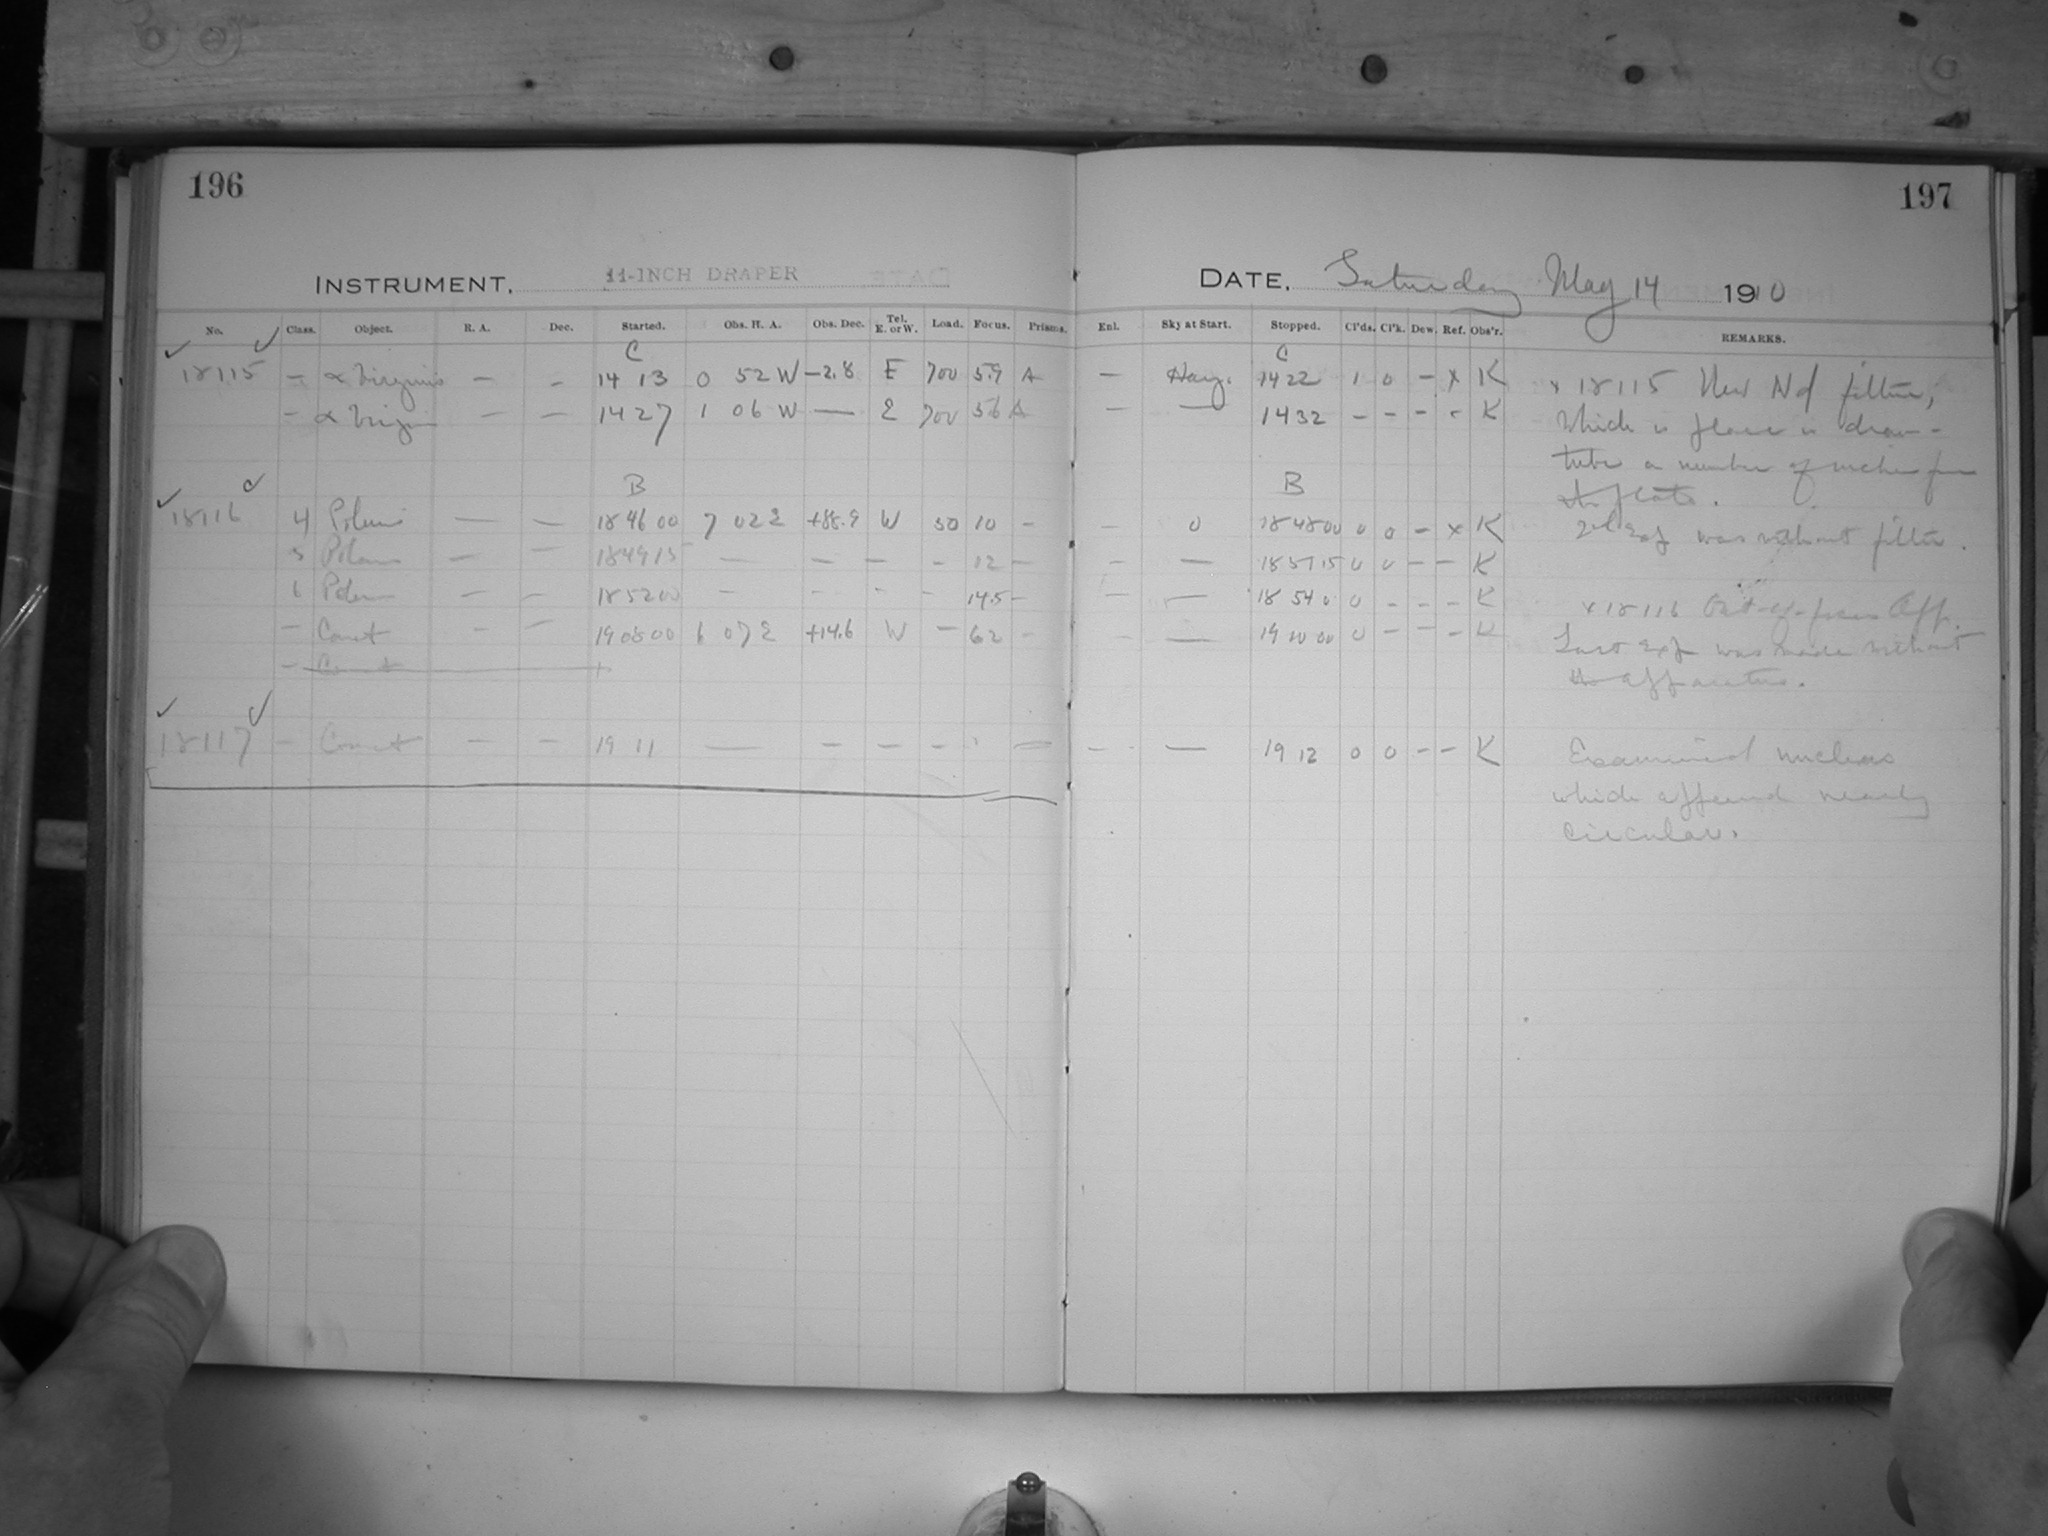 196
197
INSTRUMENT. 11-INCH DRAPER
DATE. Saturday May 14 1910
No. Class. Object. R. A. Dec. Started. Obs. H. A. Obs. Dec. Tel. E. or W. Load. Focus. Prisms. Enl. Sky at Start. Stopped. Cl'ds. Cl'k. Dew. Ref. Obs'r. REMARKS.
C C
18115 — α Virginis — — 14 13 0 52 W —2.8 E 700 5.9 A — Hazy. 1422 1 0 — x K x 18115 New Nd filter,
— α Virgin — — 1427 1 06 W — E 700 56 A — — 1432 — — — — K which is place in draw-
tube a number of inches from
the plate.
B B
18116 4 Polaris — — 184600 7 02 E +88.9 W 50 10 — — 0 184800 0 0 — x K 2nd Exp was without filter.
5 Polaris — — 184915 — — — — 12 — — — 185115 0 0 — — K
6 Polaris — — 185200 — — — — 14.5 — — — 18 54 0 0 — — — K x 18116 Out-of-focus App.
— Comet — — 190800 6 07 E +14.6 W — 62 — — — 19 10 00 0 — — — K Last Exp was made without
— Comet the apparatus.
18117 — Comet — — 19 11 — — — — — — — 19 12 0 0 — — K Examined nucleus
which appeared nearly
circular.